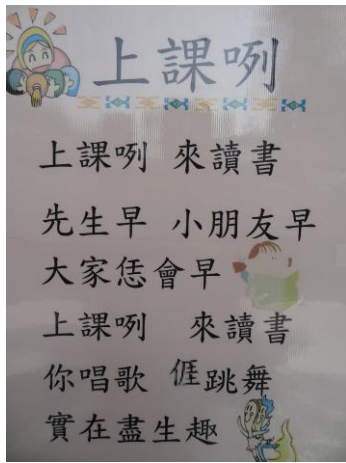 上課咧
上課咧 來讀書
先生早 小朋友早
大家恁會早
上課咧 來讀書
你唱歌 𠊎跳舞
實在盡生趣